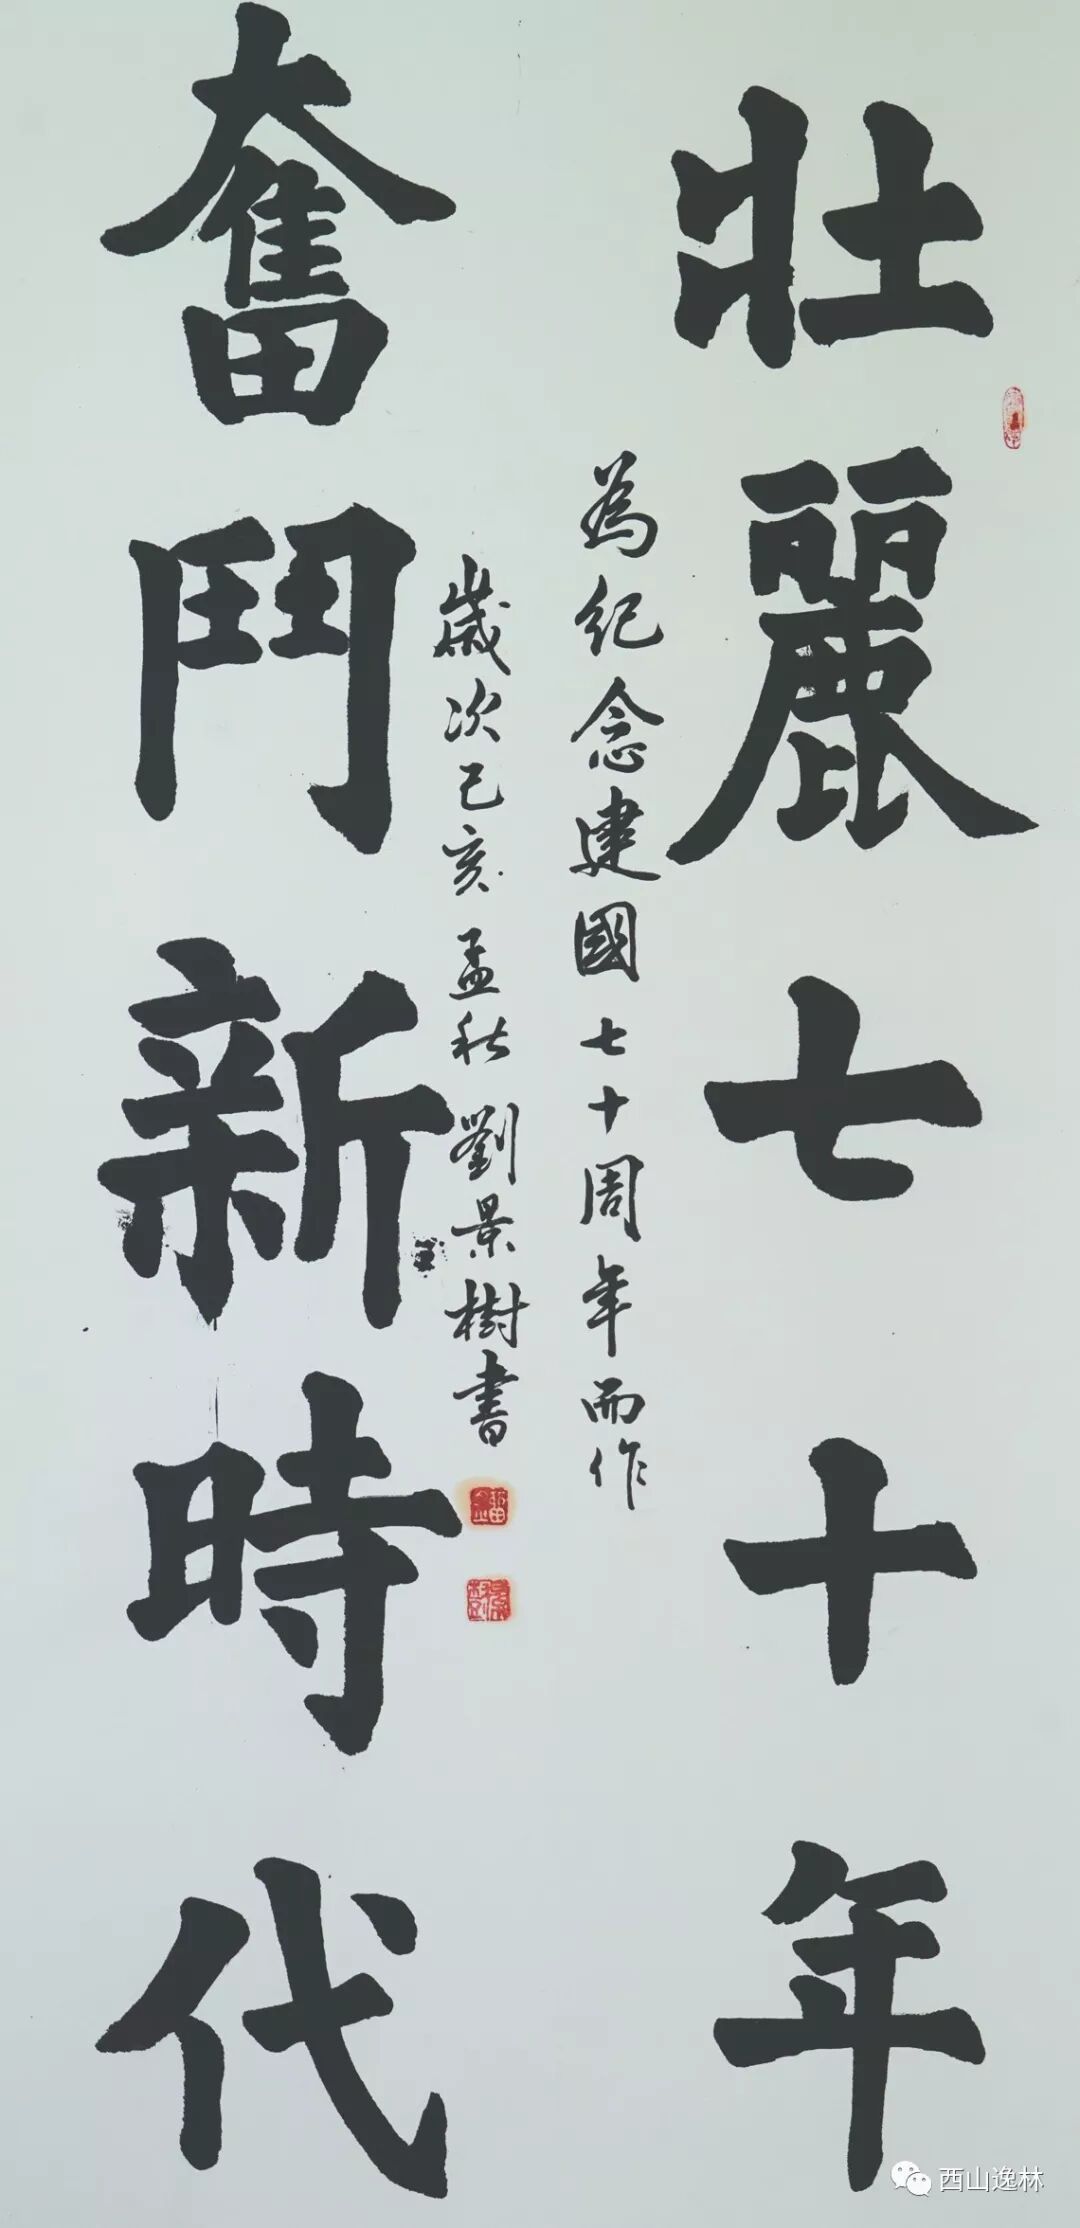 壯麗七十年
為纪念建國七十周年而作
歲次己亥孟秋劉景樹書
奮鬥新時代
西山逸林